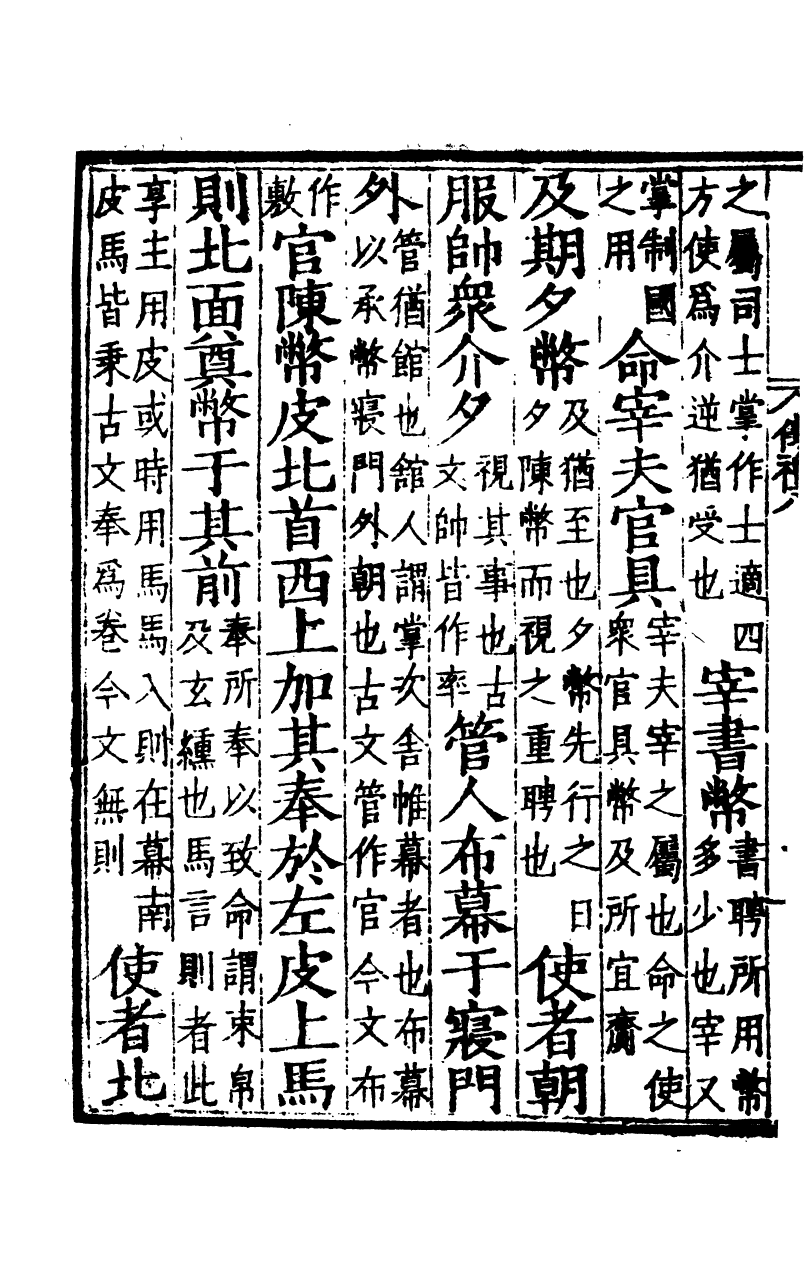 之屬司士掌作士適四方使爲介逆猶受也宰書幣書聘所用幣多少也宰又
掌制國之用命宰夫官具宰夫宰之屬也命之使衆官具幣及所宜齎
及期夕幣及猶至也夕幣先行之日夕陳幣而視之重聘也使者朝
服帥衆介夕視其事也古文帥皆作率管人布幕于寢門
外管猶館也館人謂掌次舍帷幕者也布幕以承幣寢門外朝也古文管作官今文布
作敷官陳幣皮北首西上加其奉於左皮上馬
則北面奠幣于其前奉所奉以致命謂束帛及玄纁也馬言則者此
享主用皮或時用馬馬入則在幕南皮馬皆乘古文奉爲卷今文無則使者北